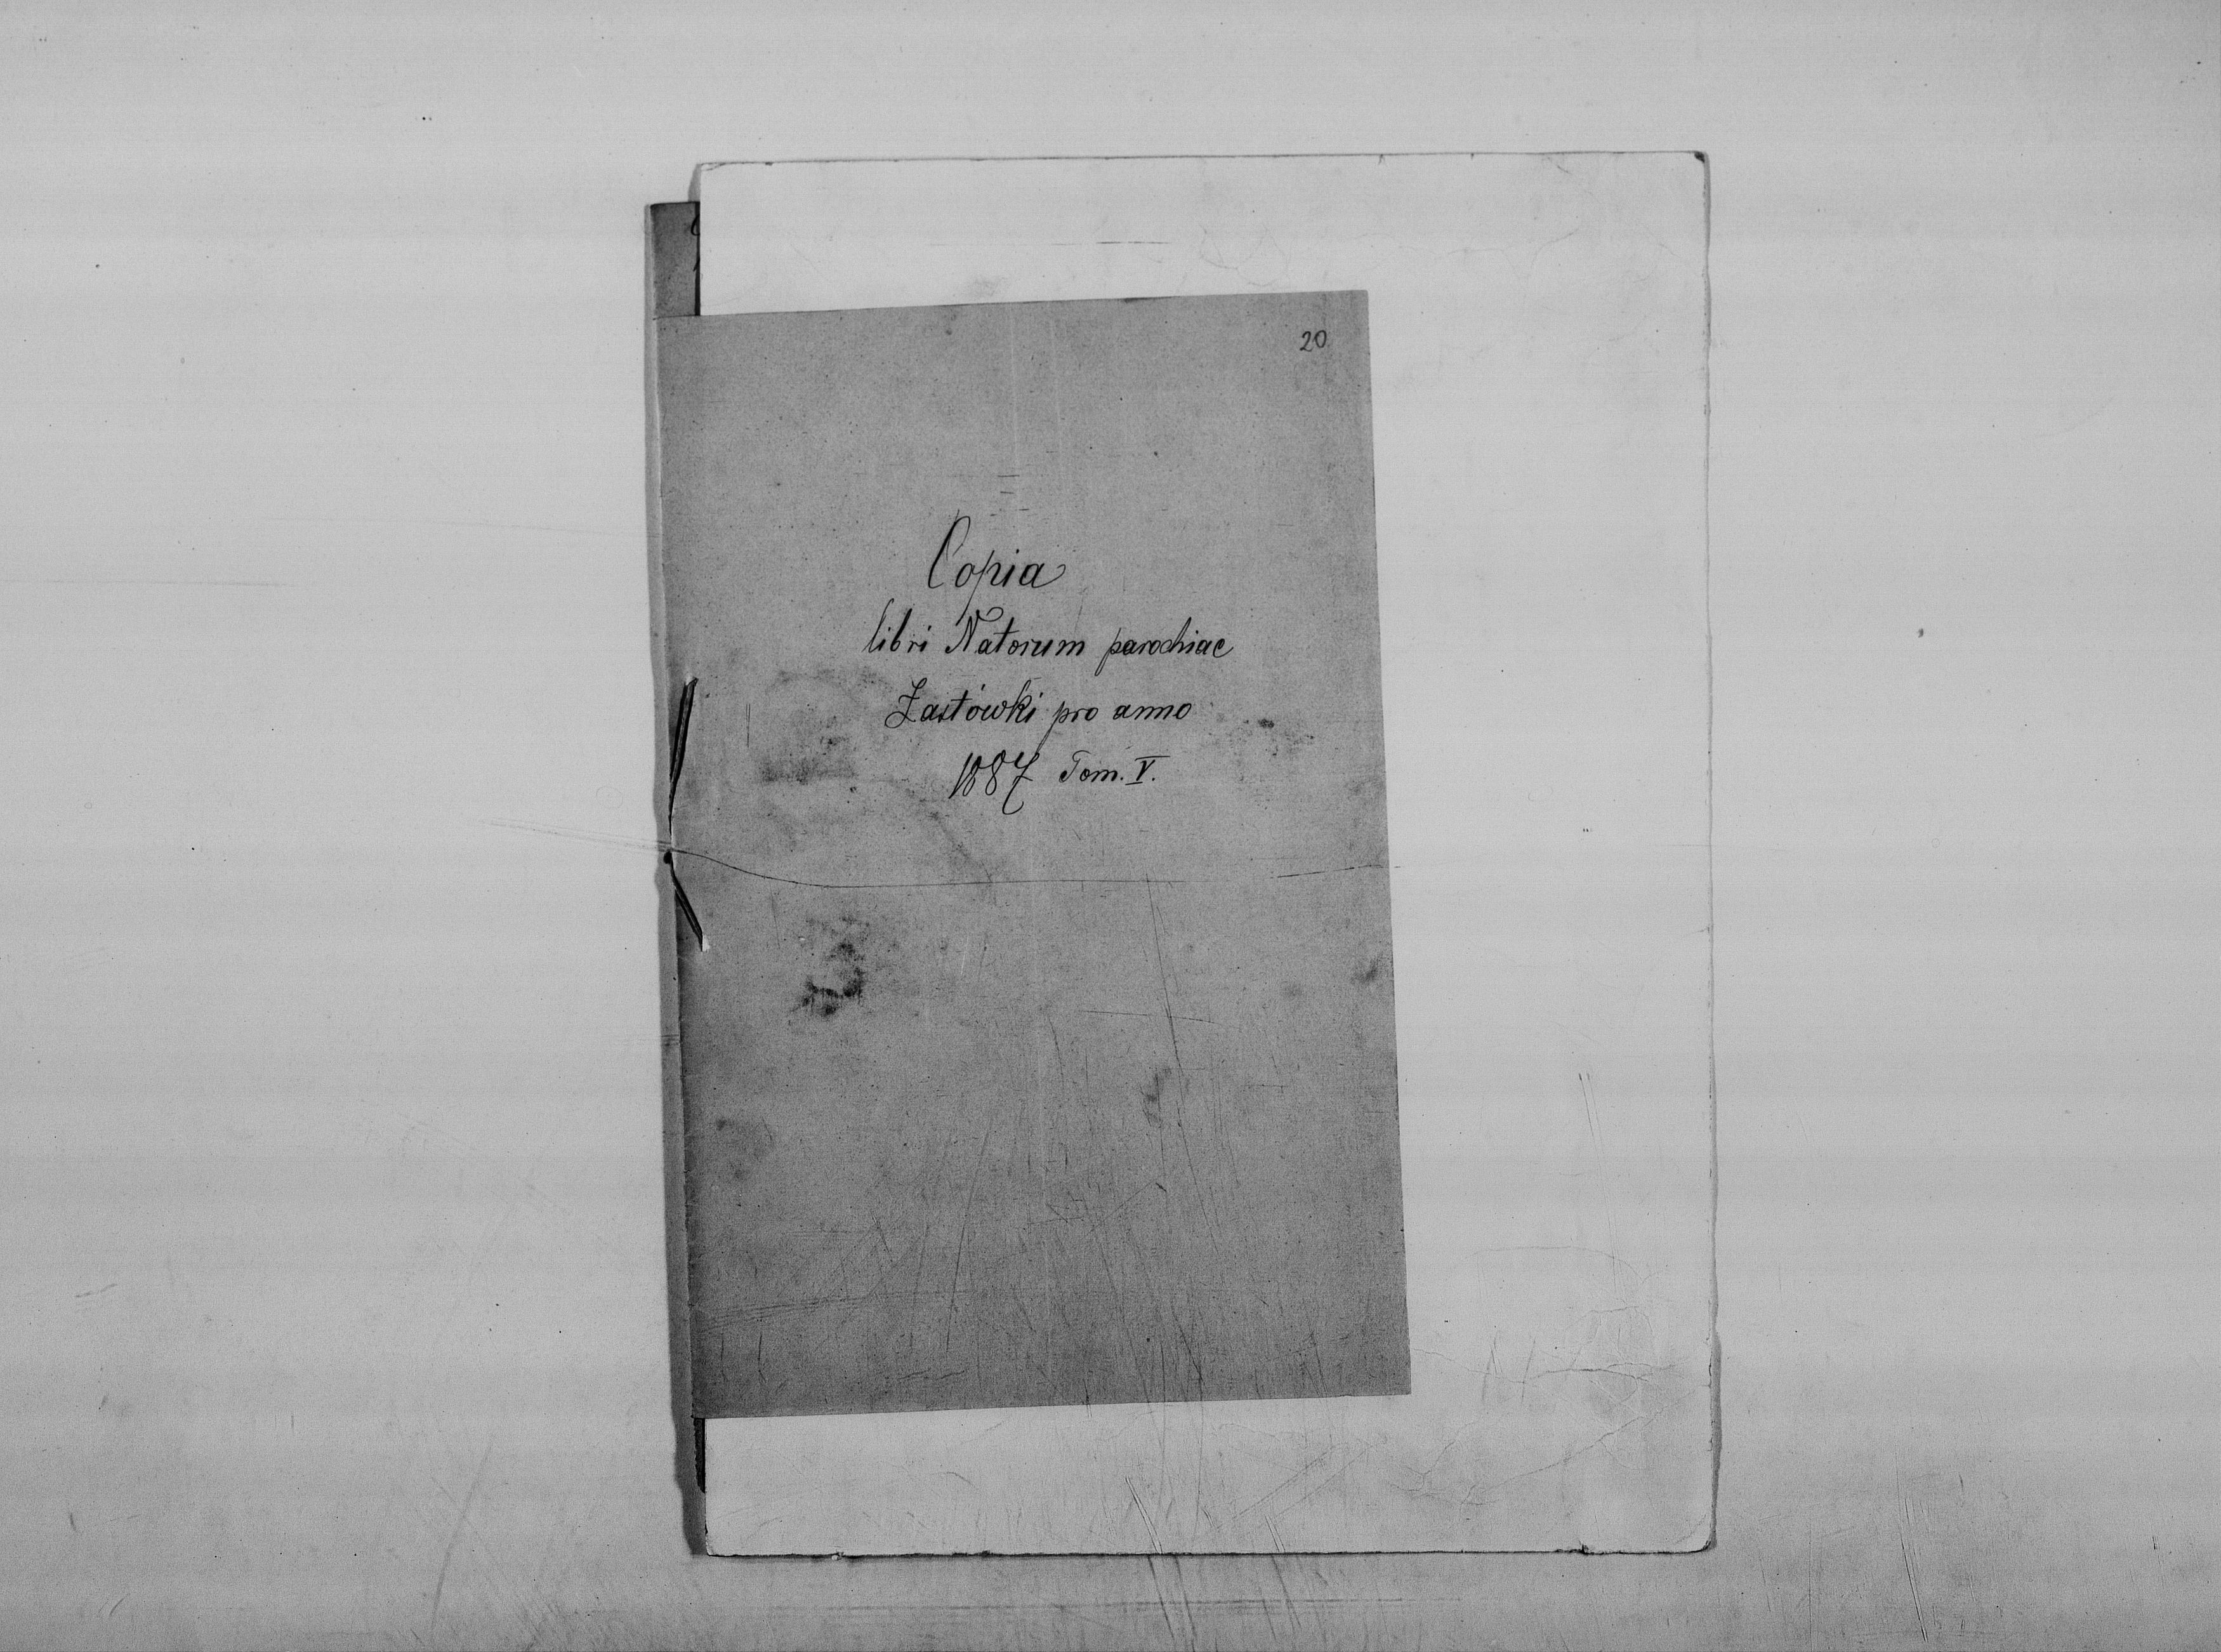 20
Copia
libri Natorum parochiae
Zastówki pro anno
1887 Tom. V.